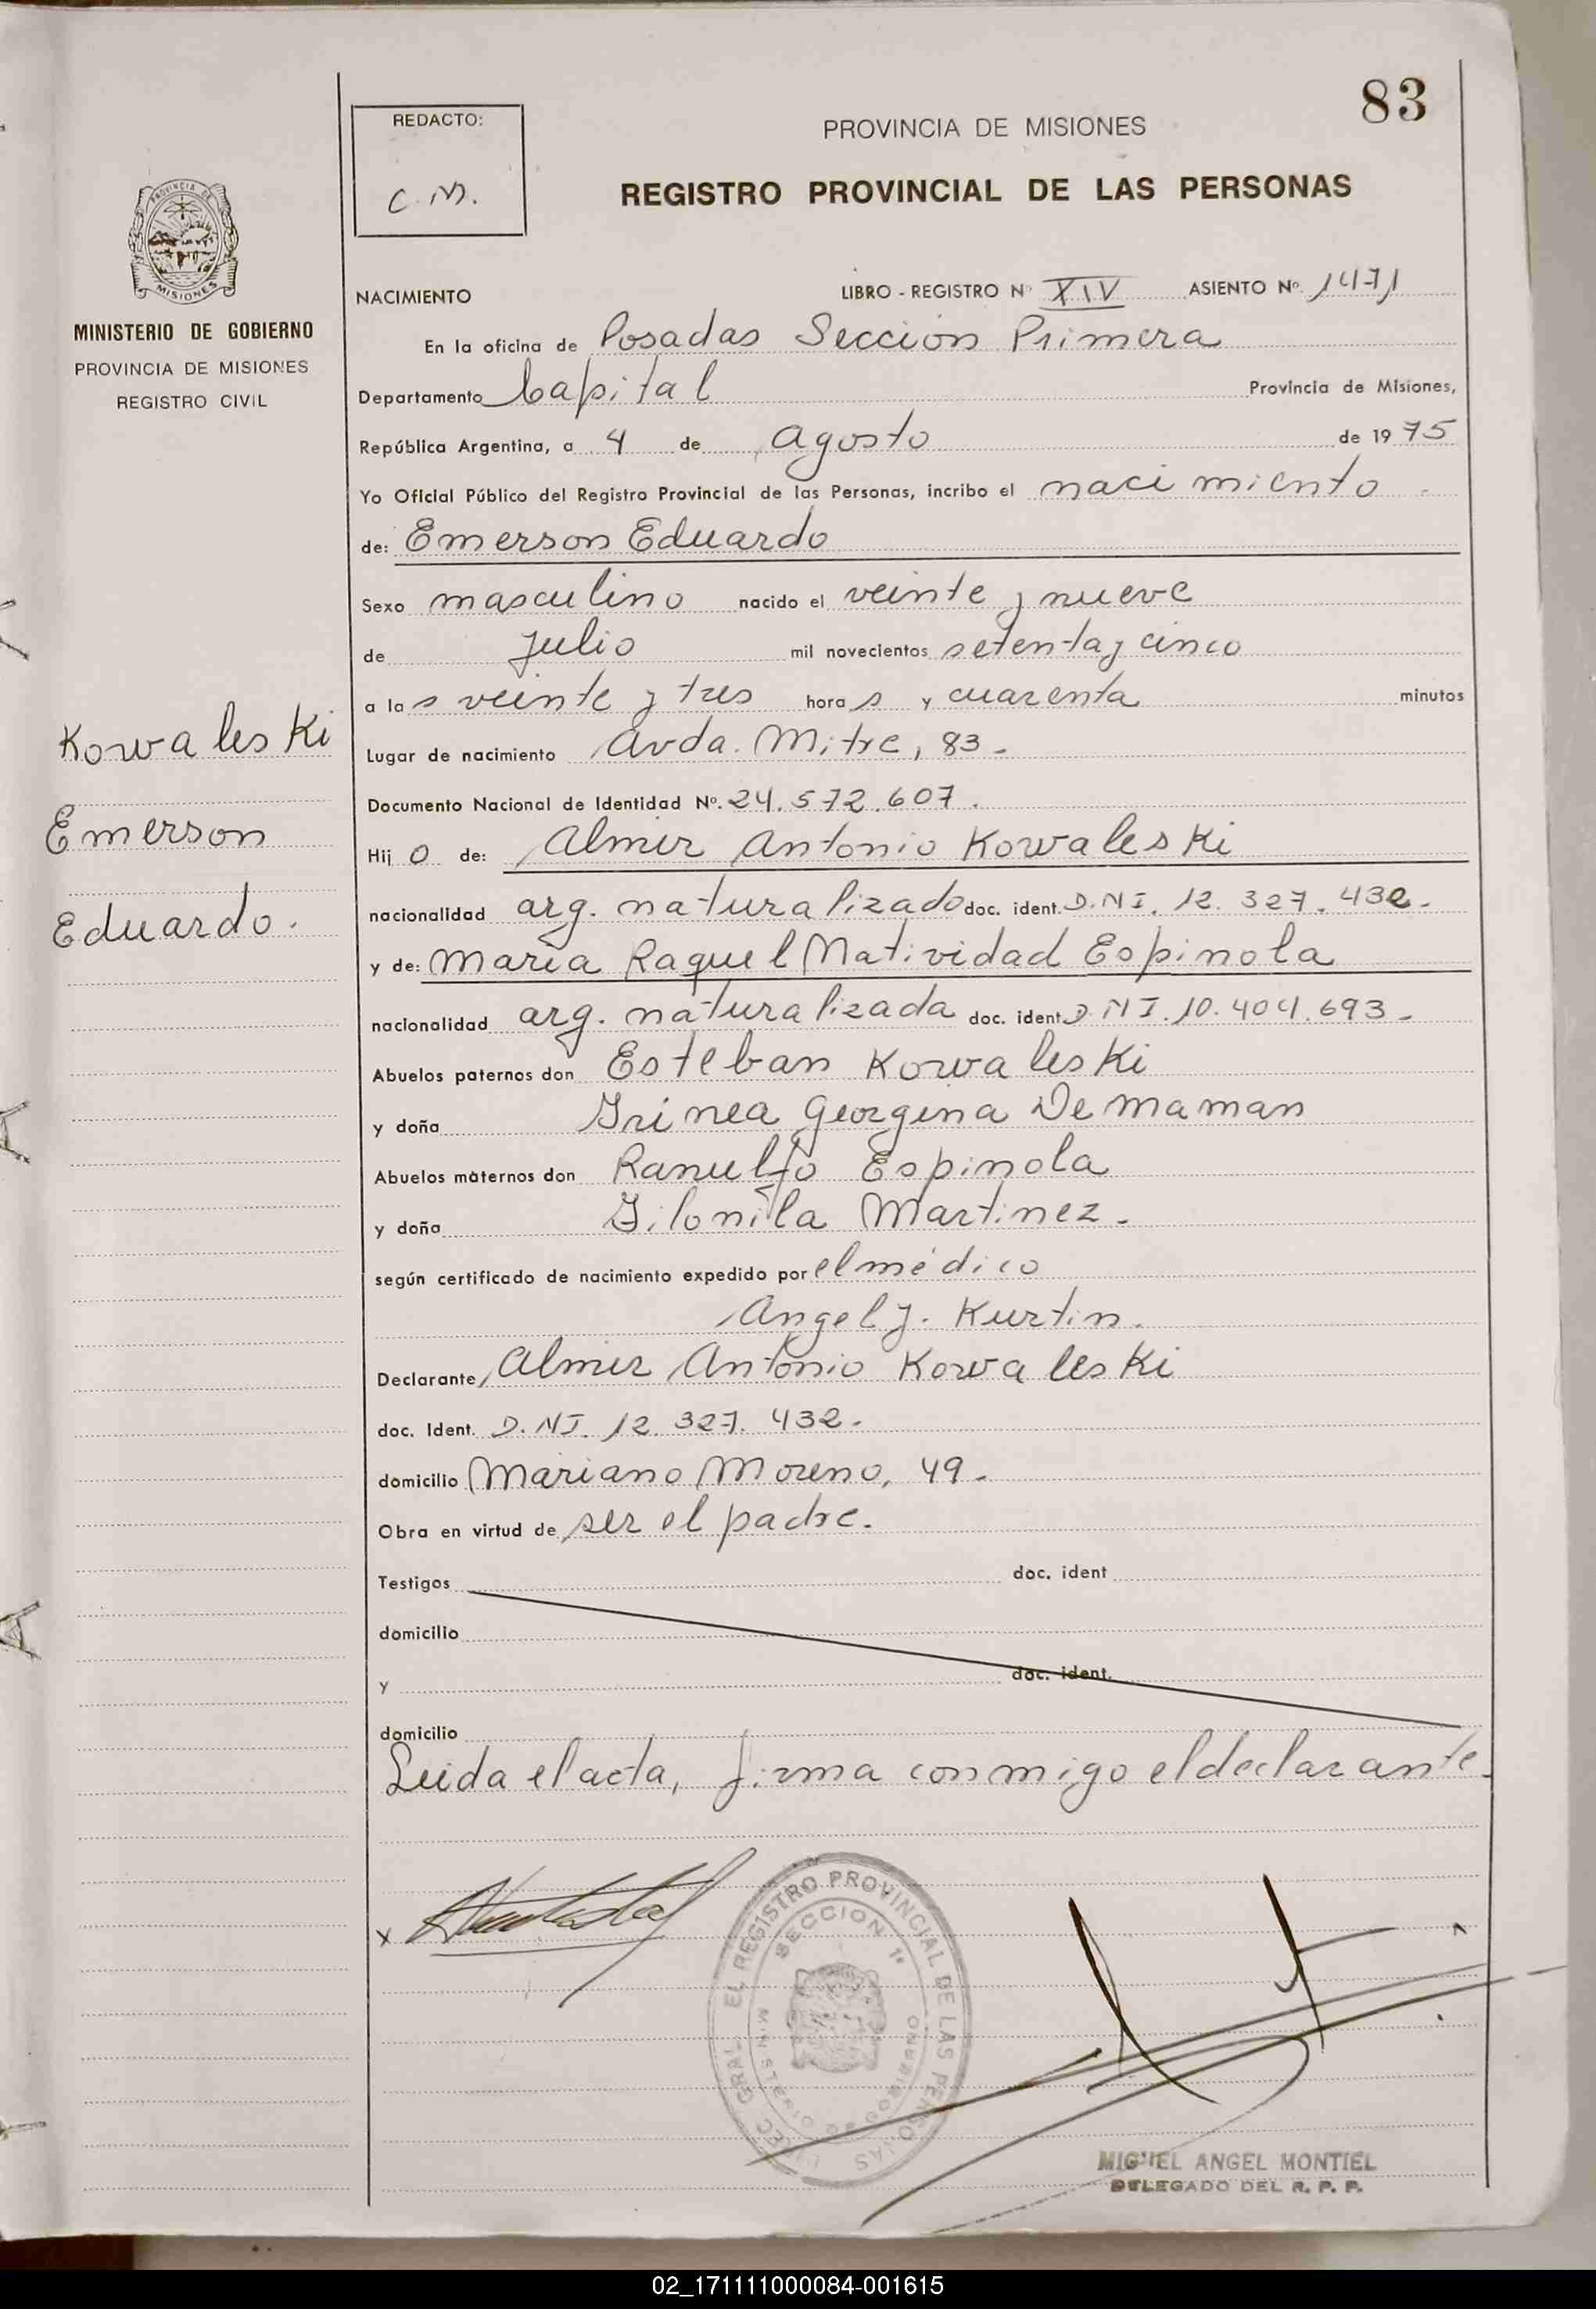 83
REDACTO:
C. M.
PROVINCIA DE MISIONES
REGISTRO PROVINCIAL DE LAS PERSONAS
PROVINCIA DE
MISIONES
MINISTERIO DE GOBIERNO
PROVINCIA DE MISIONES
REGISTRO CIVIL
NACIMIENTO LIBRO - REGISTRO Nº XIV ASIENTO Nº 1471
En la oficina de Posadas Seccion Primera
Departamento Capital Provincia de Misiones,
República Argentina, a 4 de Agosto de 1975
Yo Oficial Público del Registro Provincial de las Personas, incribo el nacimiento
de: Emerson Eduardo
Sexo masculino nacido el veinte y nueve
de Julio mil novecientos setenta y cinco
a las veinte y tres horas y cuarenta minutos
Kowaleski
Emerson
Eduardo.
Lugar de nacimiento Avda. Mitre, 83.
Documento Nacional de Identidad Nº. 24.572.607.
Hijo de: Almir Antonio Kowaleski
nacionalidad arg. naturalizado doc. ident. D.NI. 12.327.432.
y de: Maria Raquel Natividad Espinola
nacionalidad arg. naturalizada doc. ident D NI. 10.404.693.
Abuelos paternos don Esteban Kowaleski
y doña Irinea Georgina De maman
Abuelos maternos don Ranulfo Espinola
y doña Martinez.
según certificado de nacimiento expedido por el médico
Angel J. Kurtin.
Declarante Almir Antonio Kowaleski
doc. Ident. D.NI. 12.327.432.
domicilio Mariano Moreno, 49.
Obra en virtud de ser el padre.
Testigos doc. ident
domicilio
y doc. ident.
domicilio
Leida el acta, firma conmigo el declarante.
x
EL REGISTRO PROVINCIAL DE LAS PERSONAS
SECCION 1ª
MIGUEL ANGEL MONTIEL
DELEGADO DEL R. P. P.
02_171111000084-001615